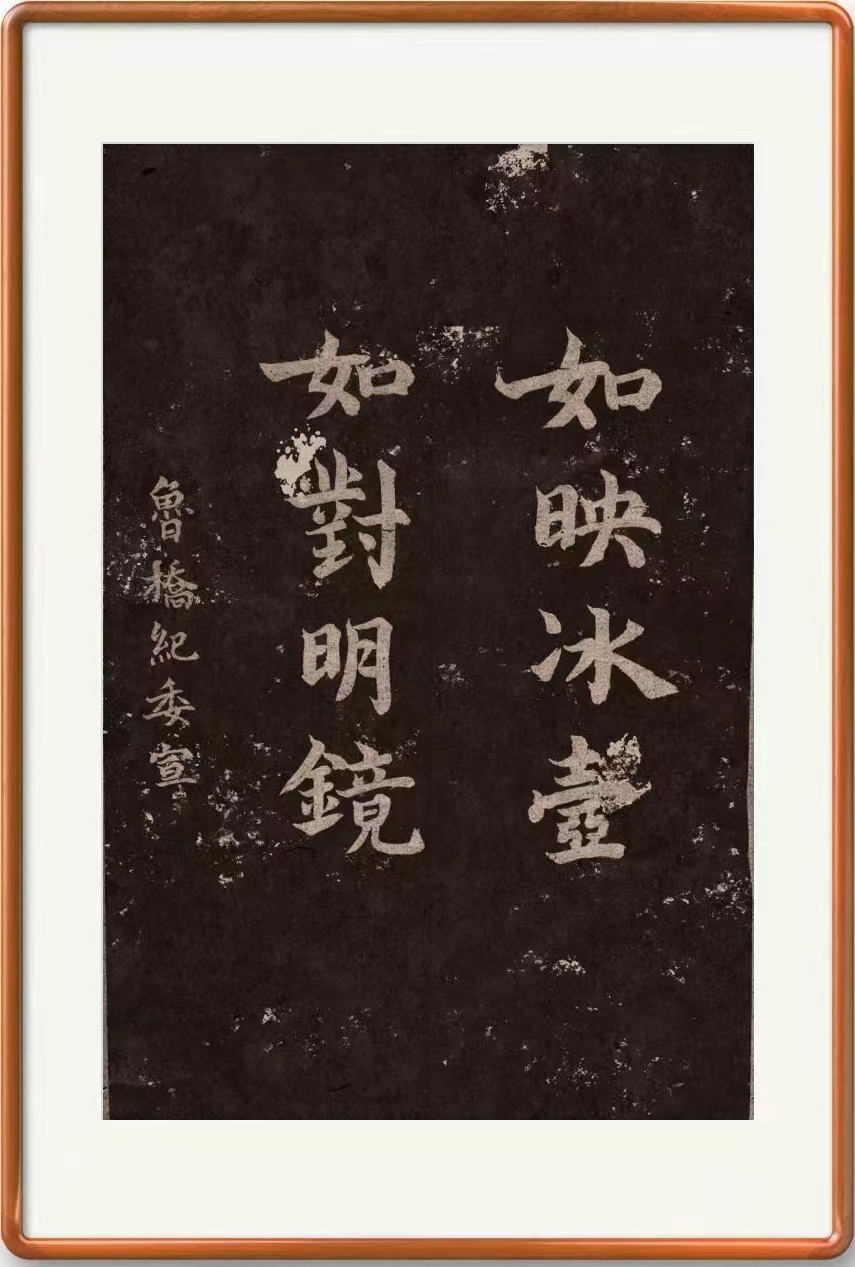 如映冰壺
如對明鏡
魯橋紀委宣